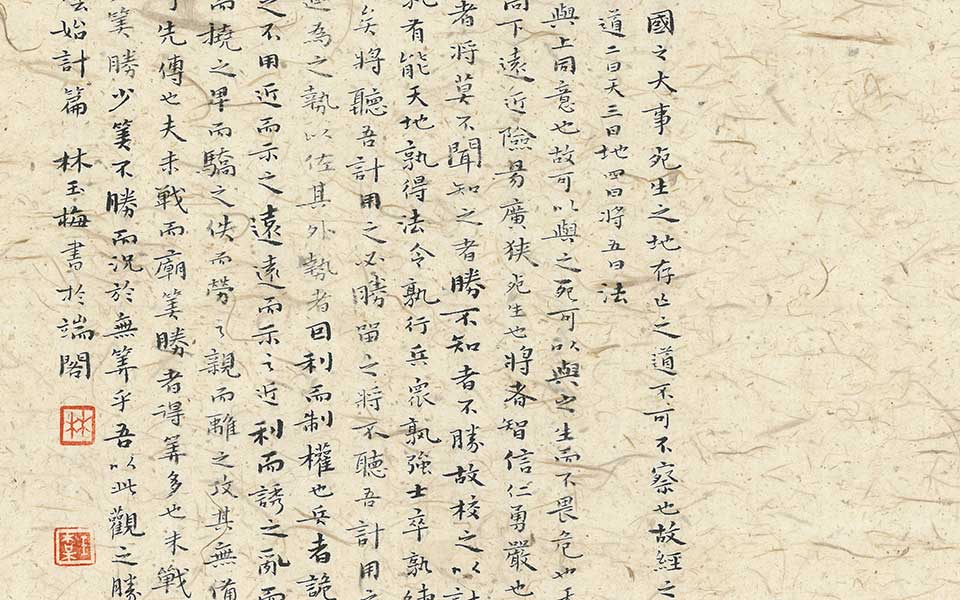 國之大事死生之地存亡之道不可不察也故經之
道二曰天三曰地四曰將五曰法
與上同意也故可以與之死可以與之生而不畏危也
下遠近險易廣狹死生也將者智信仁勇嚴也
者將莫不聞知之者勝不知者不勝故校之以計
有能天地孰得法令孰行兵衆孰強士卒孰練
矣將聽吾計用之必勝留之將不聽吾計用之
為之埶以佐其外埶者因利而制權也兵者詭
之不用近而示之遠遠而示之近利而誘之亂而
而撓之卑而驕之佚而勞之親而離之攻其無備
先傳也夫未戰而廟筭勝者得筭多也未戰
筭勝少筭不勝而況於無筭乎吾以此觀之勝
始計篇 林玉梅書於端閣
林